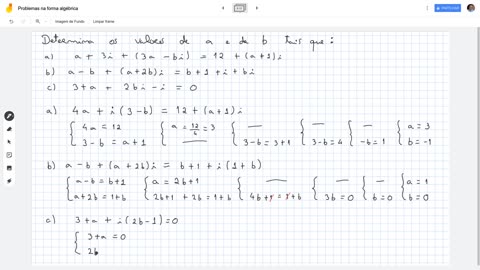 Problemas na forma algébrica
2/2
PARTILHAR
Imagem de Fundo
Limpar frame
Determina os valores de a e de b tais que:
a) a + 3i + (3a - bi) = 12 + (a+1)i
b) a - b + (a+2b)i = b + 1 + i + bi
c) 3 + a + 2bi - i = 0
a) 4a + i(3-b) = 12 + (a+1)i
{ 4a = 12 { a = 12/4 = 3 { — { — { — { a = 3
3 - b = a+1 — 3-b = 3+1 3-b = 4 -b = 1 b = -1
b) a - b + (a+2b)i = b+1 + i(1+b)
{ a-b = b+1 { a = 2b+1 { — { — { — { a = 1
a+2b = 1+b 2b+1 + 2b = 1+b 4b+1 = 1+b 3b = 0 b = 0 b = 0
c) 3+a + i(2b-1) = 0
{ 3+a = 0
2b